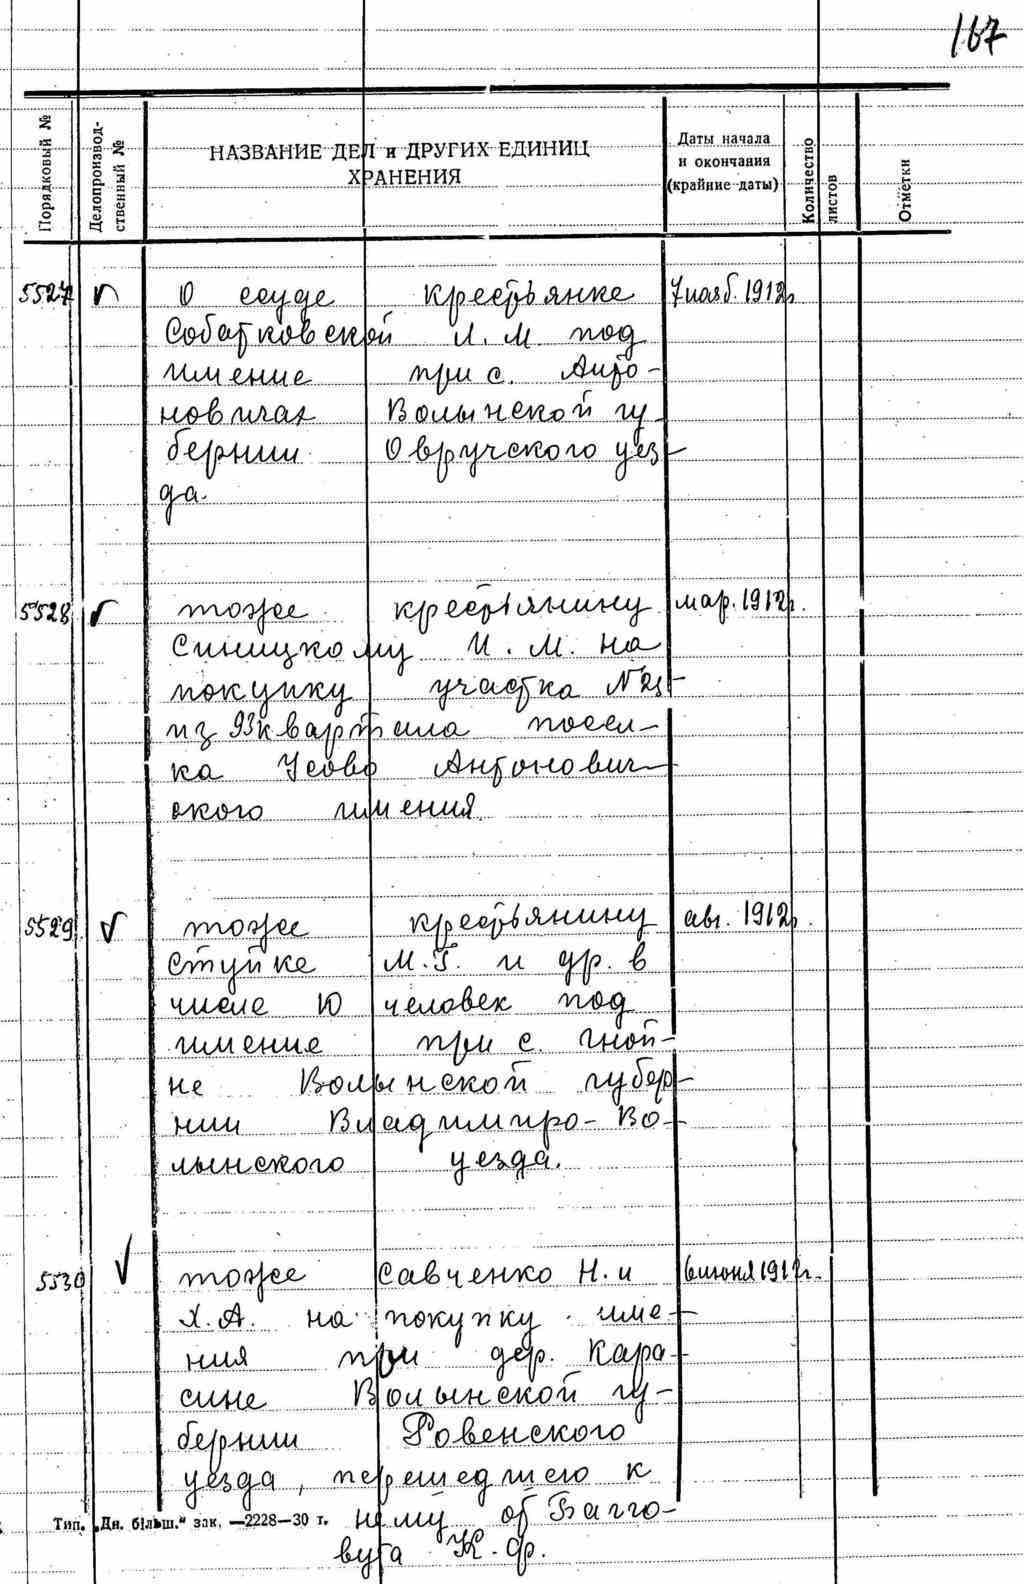 167
Порядковый №
Делопроизвод-
ственный №
НАЗВАНИЕ ДЕЛ и ДРУГИХ ЕДИНИЦ
ХРАНЕНИЯ
Даты начала
и окончания
(крайние даты)
Количество
листов
Отметки
5527 О ссуде крестьянке 7 нояб. 1912г
Собатковской Л. М. под
имение при с. Анто-
новичах Волынской гу-
бернии Овручского уез-
да.
5528 тоже крестьянину мар. 1912г.
Синицкому И. М. на
покупку участка №25
из 93 квартала посел-
ка Усово Антонович-
ского имения.
5529 тоже крестьянину авг. 1912г.
Ступке М.Г. и др. в
числе 10 человек под
имение при с. Гной-
не Волынской губер-
нии Владимиро-Во-
лынского уезда.
5530 тоже Савченко Н. и 6 июня 1912г.
Х.А. на покупку име-
ния при дер. Кара-
сине Волынской гу-
бернии Ровенского
уезда, перешедшего к
нему от Багго-
вута К. Ф.
Тип. „Дн. більш." зак. —2228—30 т.